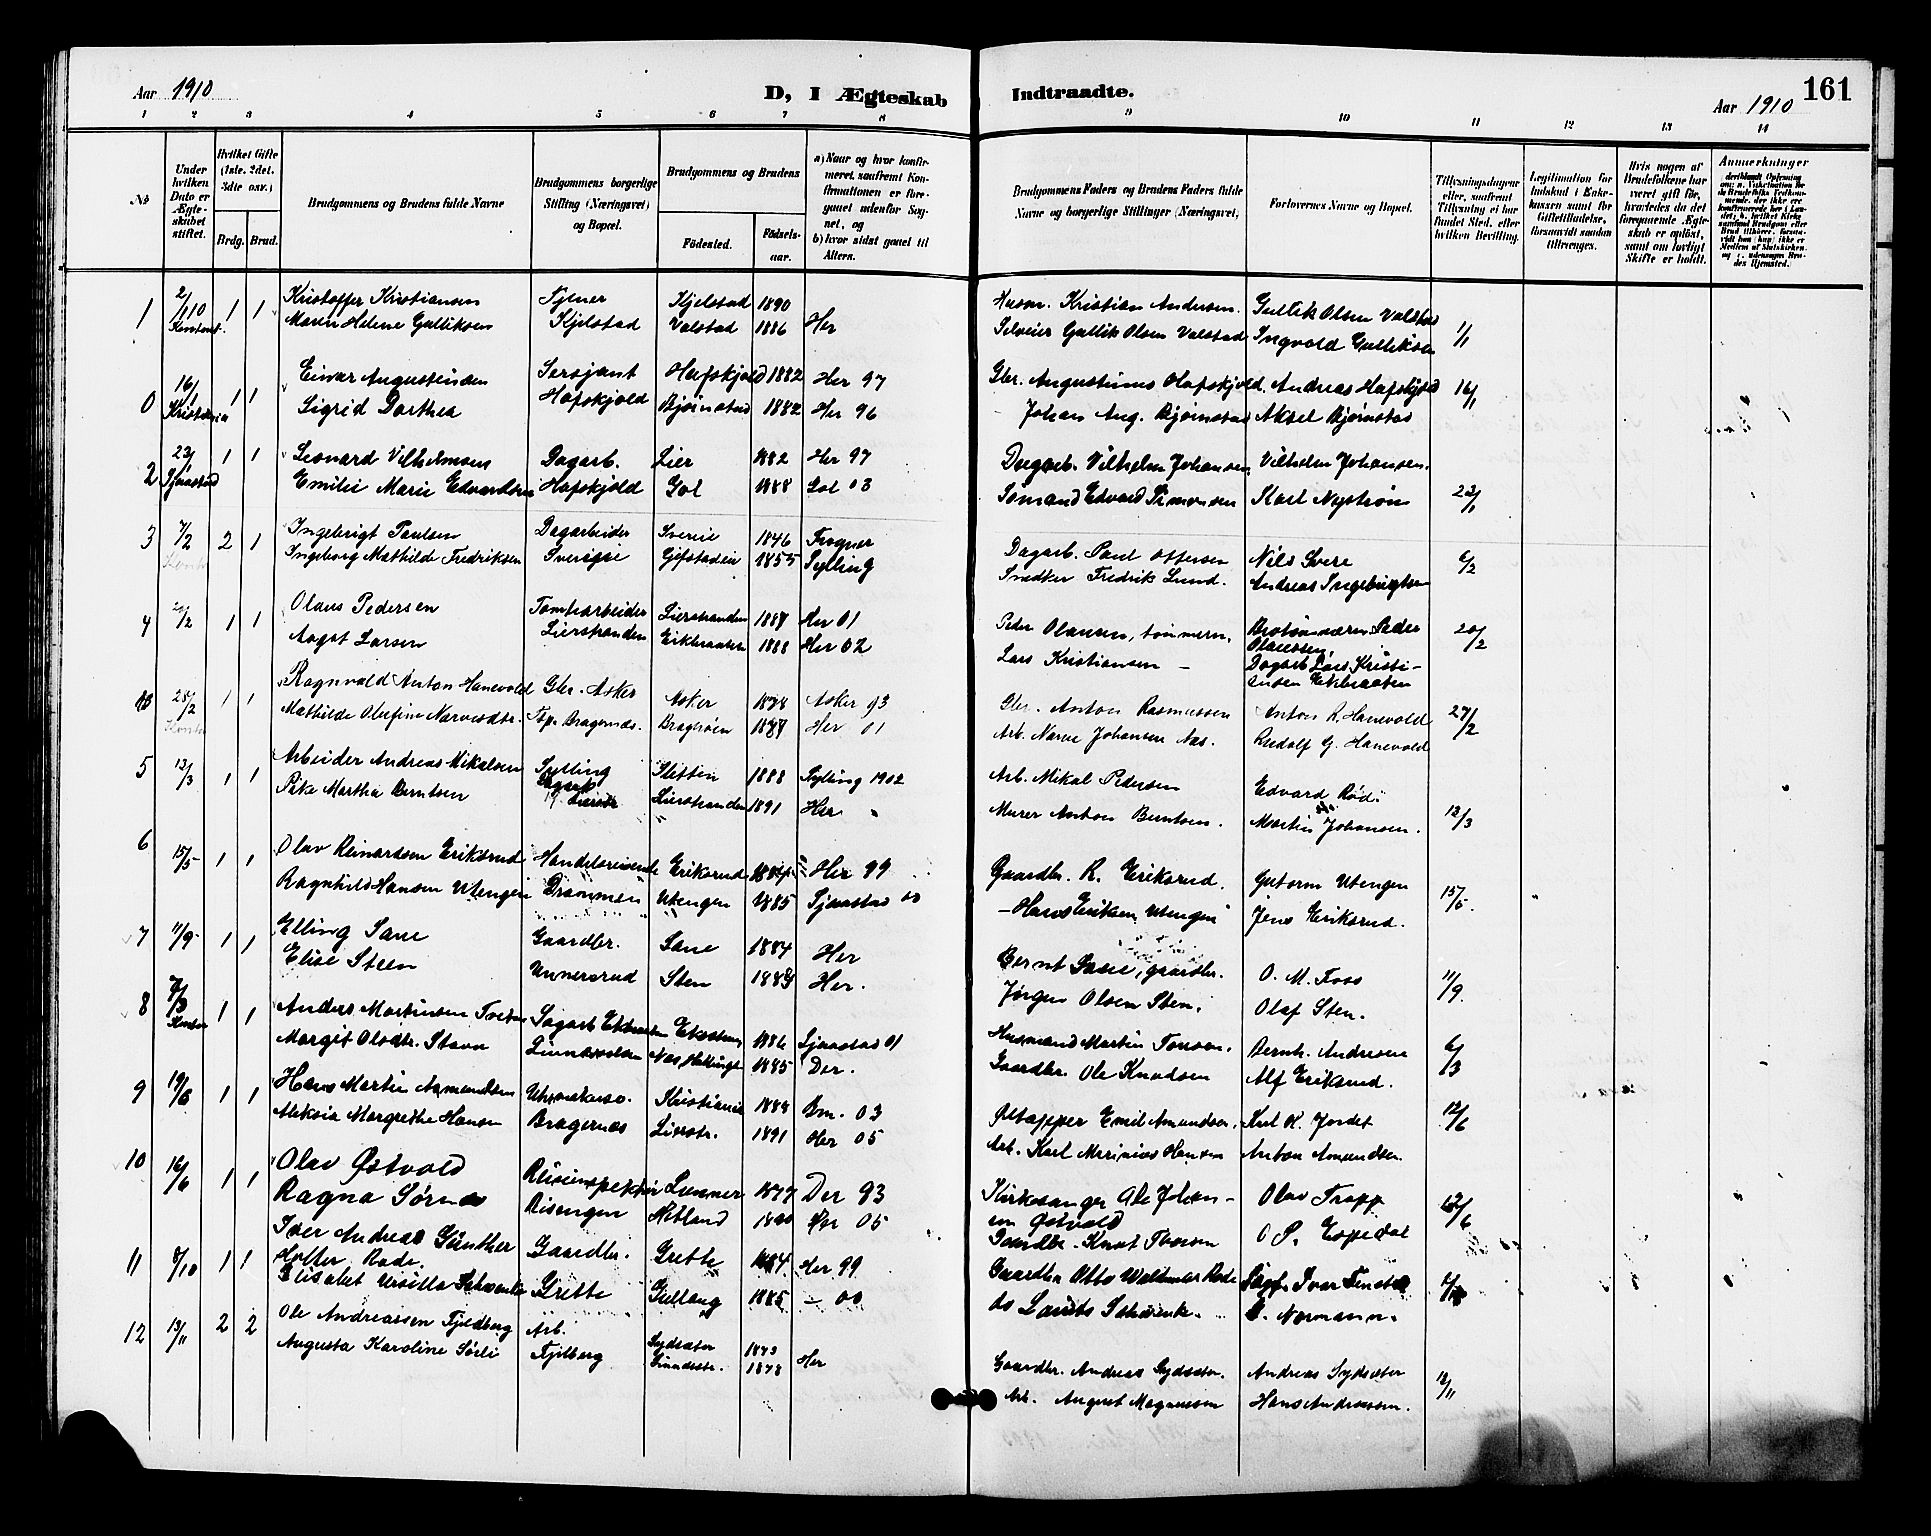 Aar 1910
D, I Ægteskab
Indtraadte.
161
Aar 1910
1 2 3 4 5 6 7 8
9 10 11 12 13 14
No
Under hvilken Dato er Ægteskabet stiftet.
Hvilket Gifte (1ste, 2det, 3die osv.)
Brdg. Brud.
Brudgommens og Brudens fulde Navne
Brudgommens borgerlige Stilling (Næringsvei) og Bopæl.
Brudgommens og Brudens
Fødested.
Fødselsaar.
a) Naar og hvor konfirmeret, saafremt Konfirmationen er foregaaet udenfor Sognet, og
b) hvor sidst gaaet til Alters.
Brudgommens Faders og Brudens Faders fulde Navne og borgerlige Stillinger (Næringsvei)
Forlovernes Navne og Bopæl.
Tillysningsdagene eller, saafremt Tillysning ei har fundet Sted, efter hvilken Bevilling.
Legitimation for Indskud i Enkekassen samt for Giftetilladelse, forsaavidt saadan tiltrænges.
Hvis nogen af Brudefolkene har været gift før, hvorledes da det foregaaende Ægteskab er opløst, samt om lovligt Skifte er holdt.
Anmærkninger
1 2/1 10 1 1 Kristoffer Kristiansen Tjener Kjelstad 1890 Husm. Kristian Andersen. Gullik Olsen Valstad
Maren Helene Gulliksen Kjelstad Valstad 1886 Her Selveier Gullik Olsen Valstad Ingvald Gulliksen 1/1
0 16/1 Kristiania 1 1 Einar Augustinsen Sersjant Hafskjold 1882 Her 97 Gbr. Augustinus Hafskjold. Andreas Hafskjold 16/1
Sigrid Dorthea Hafskjold Bjørnstad 1882 Her 96 Johan Aug. Bjørnstad Aksel Bjørnstad
2 23/1 Sjaastad 1 1 Leonard Vilhelmsen Dagarb. Lier 1882 Her 97 Dagarb. Vilhelm Johansen, Vilhelm Johansen.
Emilie Marie Edvardsen Hafskjold Gol 1888 Gol 03 Sømand Edvard Simonsen Karl Nystrøm 23/1
3 7/2 2 1 Ingebrigt Paulsen Dagarbeider Sverie 1846 Frogner Dagarb. Paul Offersen Nils Svere 6/2
Ingeborg Mathilde Fredriksen Gifstadeie 1855 Sylling Snedker Fredrik Lund. Andreas Ingebrigtsen
4 1 1 Olaus Pedersen Tomtarbeider Lierstranden 1887 Her 01 Peder Olausen, tømmerm. Peder Olaussen 20/2
Aagot Larsen Lierstranden Eikbraaten 1888 Her 02 Lars Kristiansen – Dagarb Lars Kristiansen Eikbraaten
28/2 1 1 Ragnvald Anton Hanevold Gbr. Asker Asker 1878 Asker 93 Gbr. Anton Rasmussen Anton R. Hanevold 27/2
Mathilde Olufine Narvesdtr. Bragernæs. Bragerøen 1887 Her 01 Arb. Narve Johansen Næs. Rudolf G. Hanevold
5 13/3 1 1 Arbeider Andreas Mikalsen Sylling Sletten 1888 Sylling 1902 Arb. Mikal Pedersen Edvard Rød
Pike Martha Berntsen Lierstranden 1891 Her Murer Anton Berntsen. Martin Johansen. 12/3
6 15/5 1 1 Olav Reinardsen Eriksrud Handelsreisende Eriksrud 1884 Her 99 Gaardbr. R. Eriksrud. Guttorm Utengen
Ragnhild Hansen Utengen Drammen Utengen 1885 Sjaastad 00 – Hans Eriksen Utengen Jens Eriksrud. 15/5
7 11/9 1 1 Elling Sane Gaardbr. Sane 1884 Her Bernt Sane, gaardbr. O. M. Foss
Elise Steen Unnersrud Sten Her. Jørgen Olsen Sten. Olaf Sten. 11/9
8 1 1 Anders Martinsen 1886 Sjaastad 01 Husmand Martin Tonsen. Bernh. Andresen 6/3
Margit Olsdtr. Stavn 1885 Der. Gaardbr. Ole Knudsen Alf Eriksrud.
9 19/6 1 1 Hans Martin Asmundsen Kristiania 1888 Bm. 03 Emil Amundsen. Karl K. Jordet 12/6
Aleksia Margrethe Hansen Bragernæs Lierstr. 1891 Her 05 Arb. Karl Marinius Hansen Anton Amundsen.
10 16/6 1 1 Olav Østvold Reiseinspektør Lunner 1877 Der 93 Kirkesanger Ole Johansen Østvold Olav Trapp
Ragna Sørnes Risengen Hetland 05 Gaardbr. Knut Thorsen O P. Espedal 12/6
11 8/10 1 1 Iver Andreas Günther Holter Rode. Gaardbr. Grette 1884 Her 99 Gaardbr Otto Waldemar Rode
Elisabet Ursilla Schwenke Grette Gullaug 1885 – 00 do Laurits Schwenke. Normann.
12 13/11 2 2 Ole Andreassen Fjeldberg Arb. Sydsæter 1843 Gaardbr. Andreas Sydsæter. Andreas Sydsæter
Augusta Karoline Sørli Fjelberg 1848 Her Arb. August Magnussen Hans Andreassen. 12/11